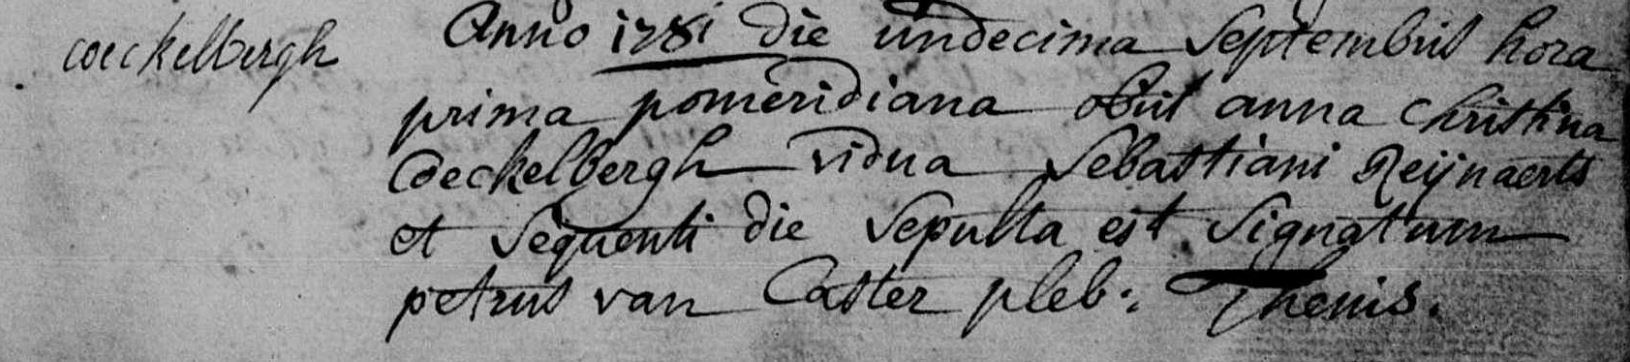 coeckelbergh
Anno 1781 die undecima Septembris hora
prima pomeridiana obiit anna Christina
Coeckelbergh vidua Sebastiani Reijnaerts
et sequenti die sepulta est. Signatum
petrus van Caster pleb: Thenis.